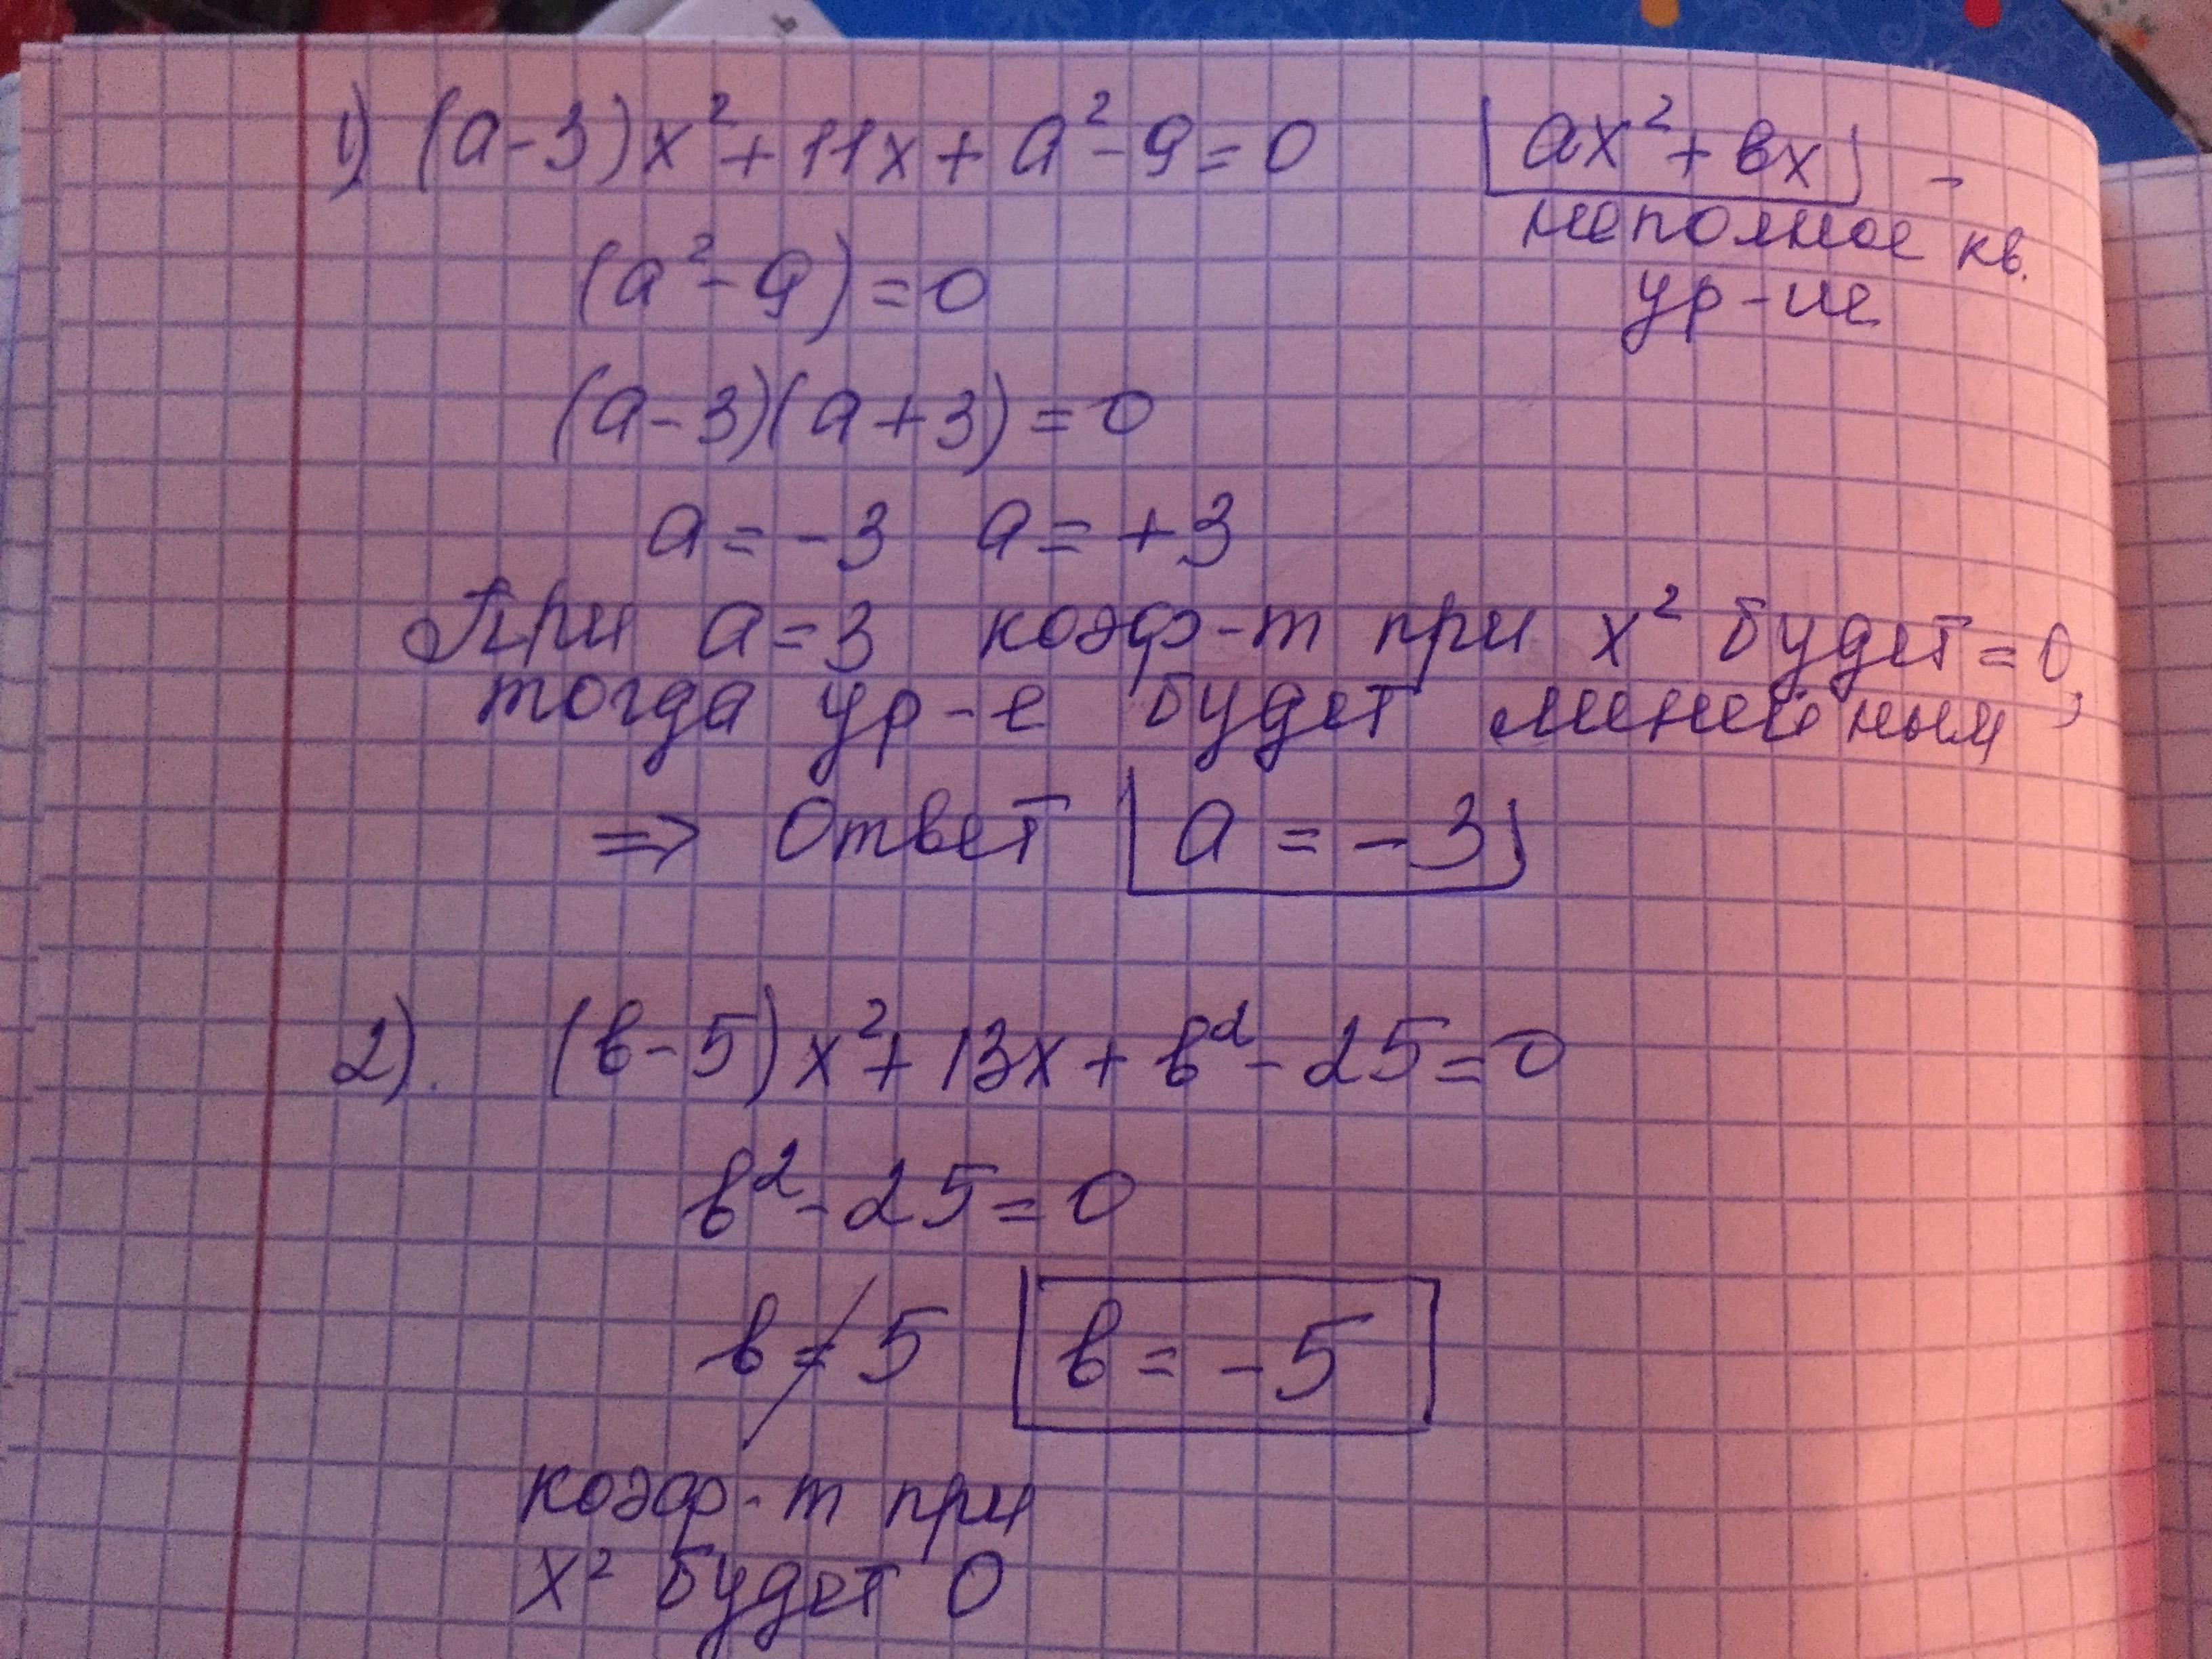 1) (a-3)x²+11x+a²-9=0
ax²+вx -
неполное кв.
ур-ие
(a²-9)=0
(a-3)(a+3)=0
a=-3 a=+3
При a=3 коэф-т при x² будет=0,
тогда ур-е будет линейным
=> Ответ a=-3
2). (в-5)x²+13x+в²-25=0
в²-25=0
в≠5 в=-5
коэф-т при
x² будет 0